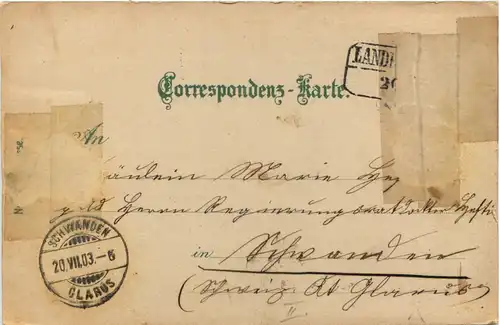 LAND
20
Correspondenz-Karte.
An
äulein Marie He
Herrn Regierungsrat
in Schwanden
(Schweiz Ct Glarus)
SCHWANDEN
20.VII.03.-6
GLARUS